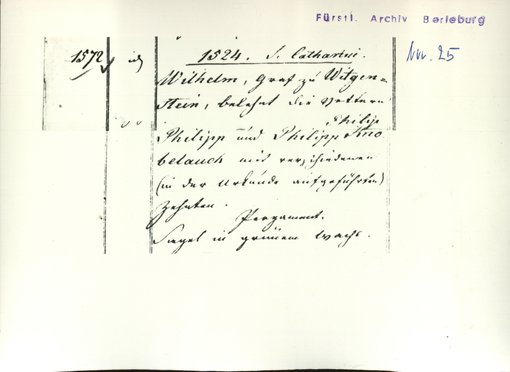 Fürstl. Archiv Berleburg
Nr. 25
1572
1524. S. Catharini.
Wilhelm, Graf zu Witgen-
stein, belehnt die Vettern
Philipp
Philipp und Philipp Kno
belauch mit verschiedenen
(in der Urkunde aufgeführten)
Zehnten.
Pergament.
Siegel in grünem Wachs.